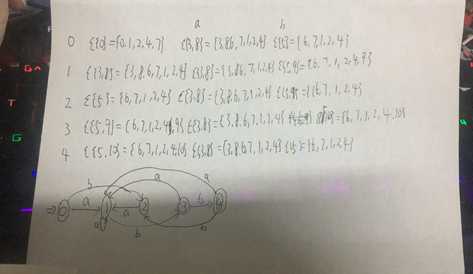 a b
0 ε{0}={0,1,2,4,7} ε{3,8}={3,8,6,7,1,2,4} ε{5}={6,7,1,2,4}
1 ε{3,8}={3,8,6,7,1,2,4} ε{3,8}={3,8,6,7,1,2,4} ε{5,9}={6,7,1,2,4,9}
2 ε{5}={6,7,1,2,4} ε{3,8}={3,8,6,7,1,2,4} ε{5}={6,7,1,2,4}
3 ε{5,9}={6,7,1,2,4,9} ε{3,8}={3,8,6,7,1,2,4} ={6,7,1,2,4,10}
4 ε{5,10}={6,7,1,2,4,10} ε{3,8}={3,8,6,7,1,2,4} ε{5}={6,7,1,2,4}
b a a
0 a 1 a 2 3 b 4
a b b